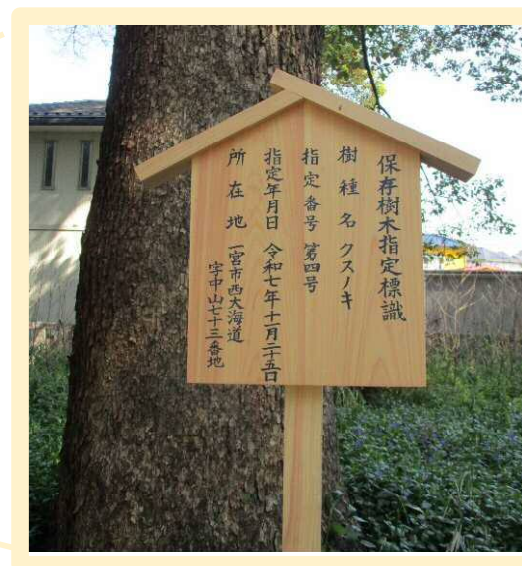 保存樹木指定標識
樹種名 クスノキ
指定番号 第四号
指定年月日 令和七年十一月二十五日
所在地 一宮市西大海道
字中山七十三番地